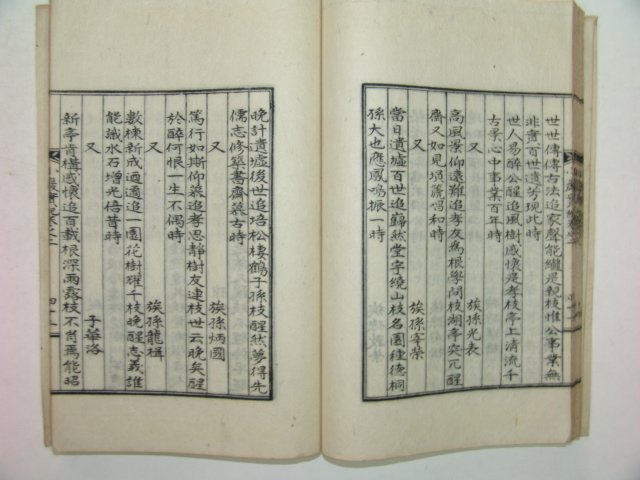 世世傳傳古法追家聲能繼是興枝惟公事業無
非責百世遺芳現此時
世人易醉公醒追風樹感懷是孝枝亭上清流千
古景心中事業百年時
又 族孫光表
高風景仰遠難追孝友爲根學問枝湖亭突兀醒
齋又如見塤篪唱和時
又 族孫宷榮
當日遺墟百世追巋然堂宇繞山枝名園種德桐
孫大也應鳳鳴振一時
晚計遺墟後世追培松棲鶴子孫枝醒然夢得先
儒志修築書齋慕古時
又 族孫炳國
篤行如斯仰慕追孝思靜樹友連枝世云晚矣醒
於醉何恨一生不偶時
又 族孫龍楫
數棟新成迺適追一園花樹耀千枝晚醒志義誰
能識水石增光倍昔時
又 子華洛
新亭肯構感懷追百載根深雨露枝不肖焉能昭